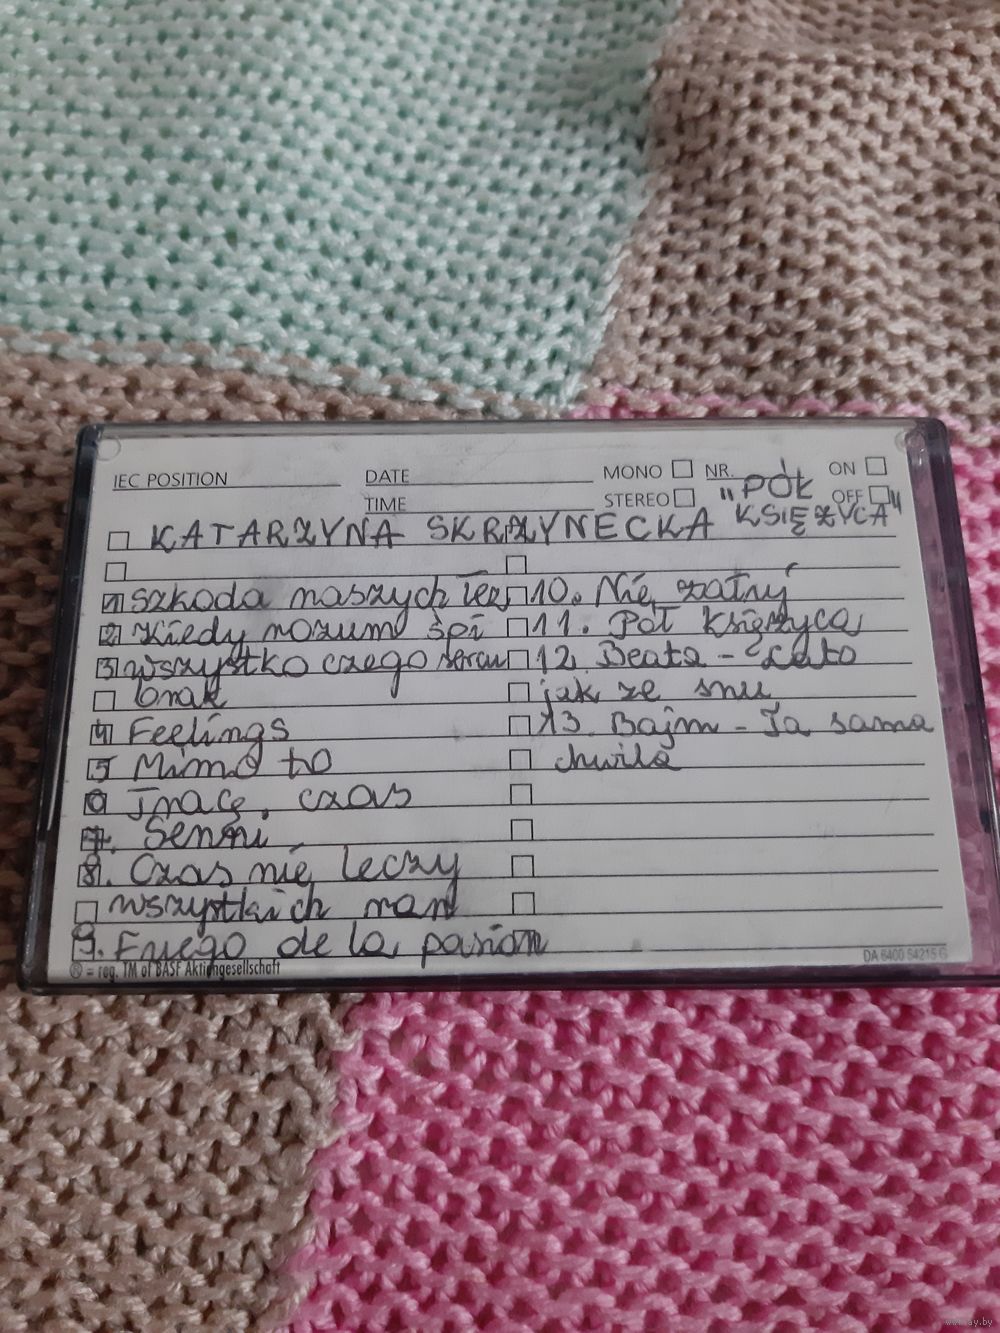 IEC POSITION
DATE
MONO NR. ON
TIME
STEREO OFF
KATARZYNA SKRZYNECKA "PÓŁ
KSIĘŻYCA"
1 Szkoda naszych łez
2 Kiedy rozum śpi
3 wszystko czego sercu
brak
4 Feelings
5 Mimo to
6 Tracę czas
7. Senni
8. Czas nie leczy
wszystkich ran
9. Fuego de la pasion
10. Nie załuj
11. Pół księżyca
12. Beata - Lato
jak ze snu
13. Bajm - Ta sama
chwila
® = reg. TM of BASF Aktiengesellschaft
DA 6400 54215 G